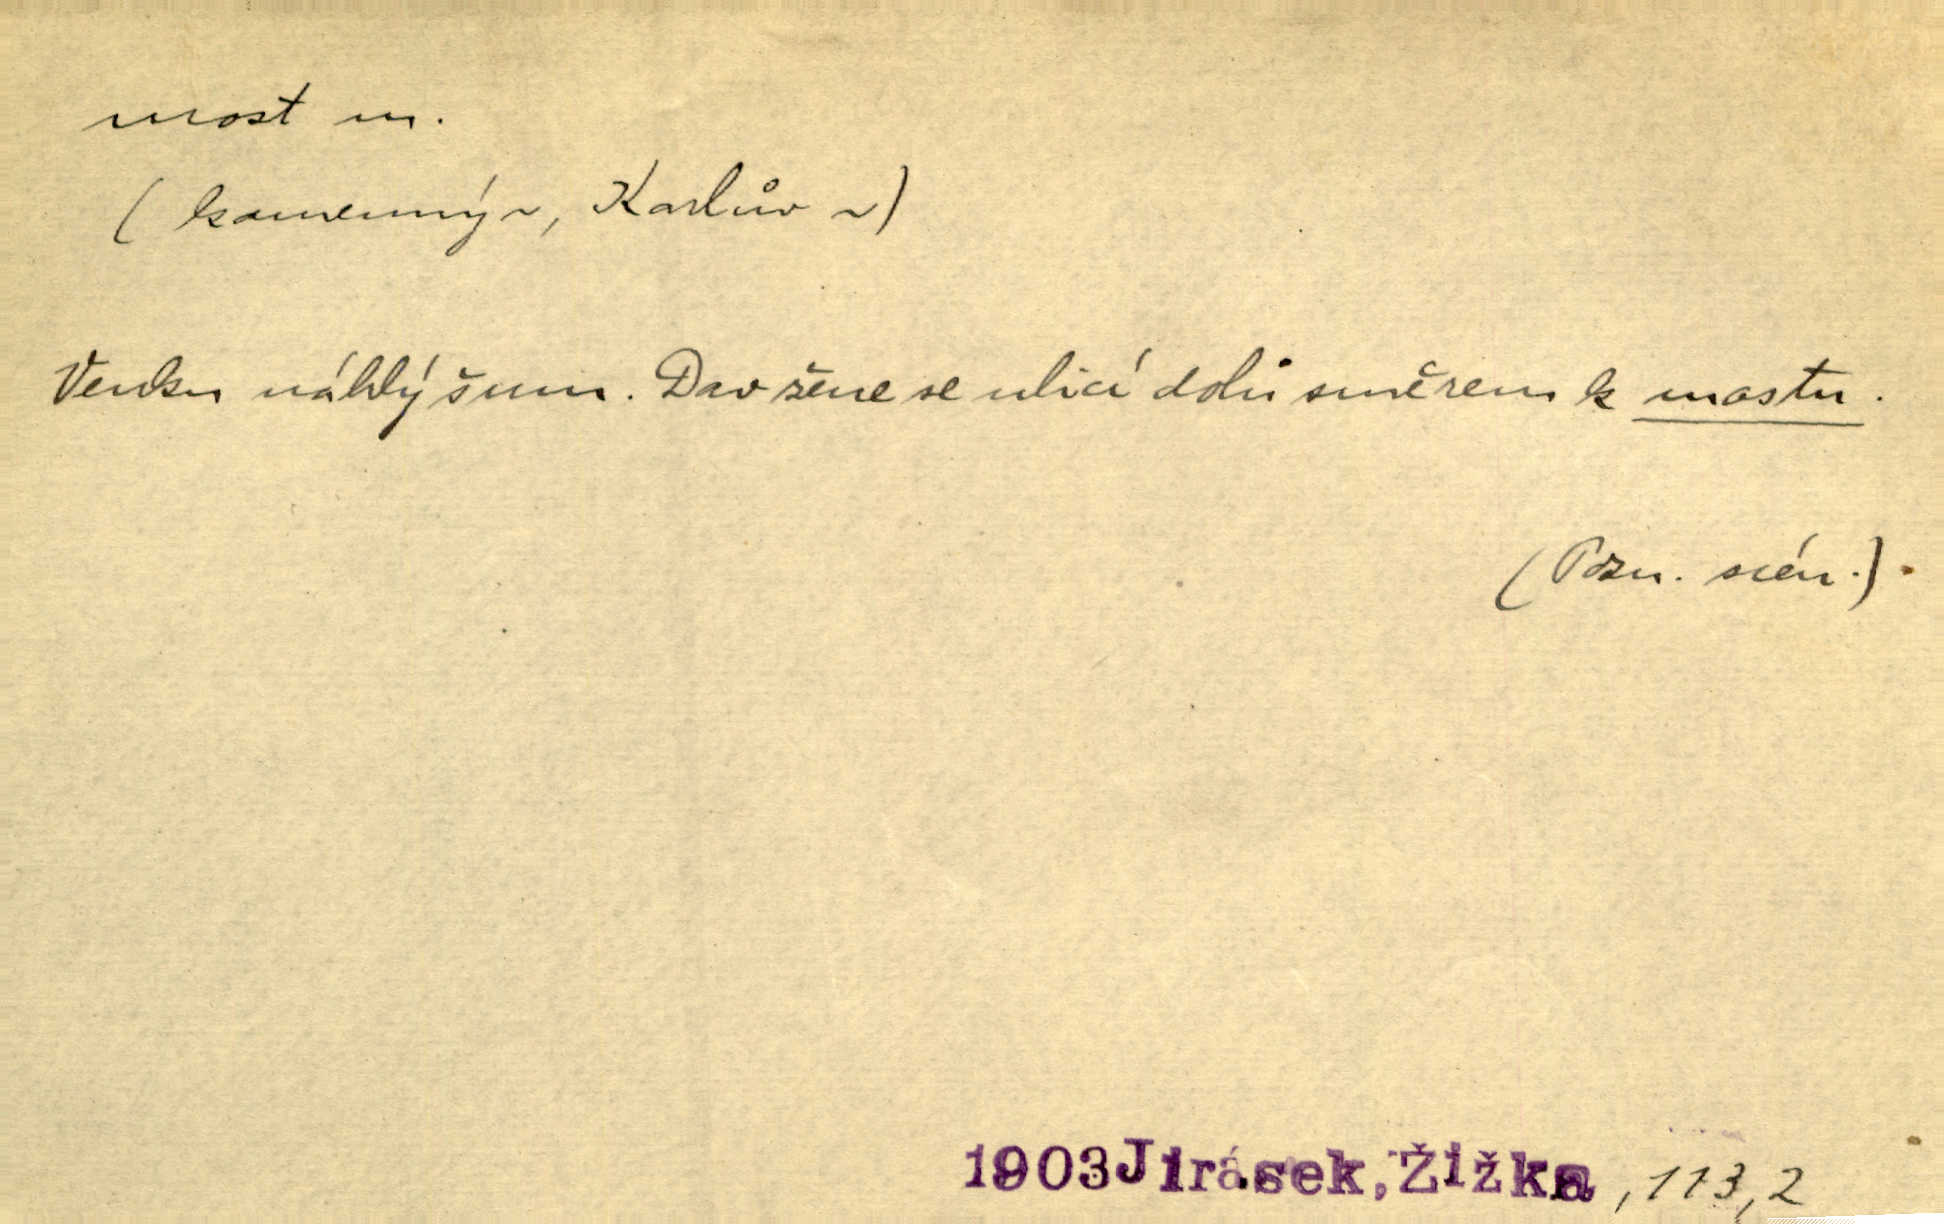 most m.
( kamenný ~, Karlův ~)
Venku náhlý šum. Dav žene se ulicí dolů směrem k mostu.
(Pozn. scén.).
1903 Jirásek, Žižka, 113,2